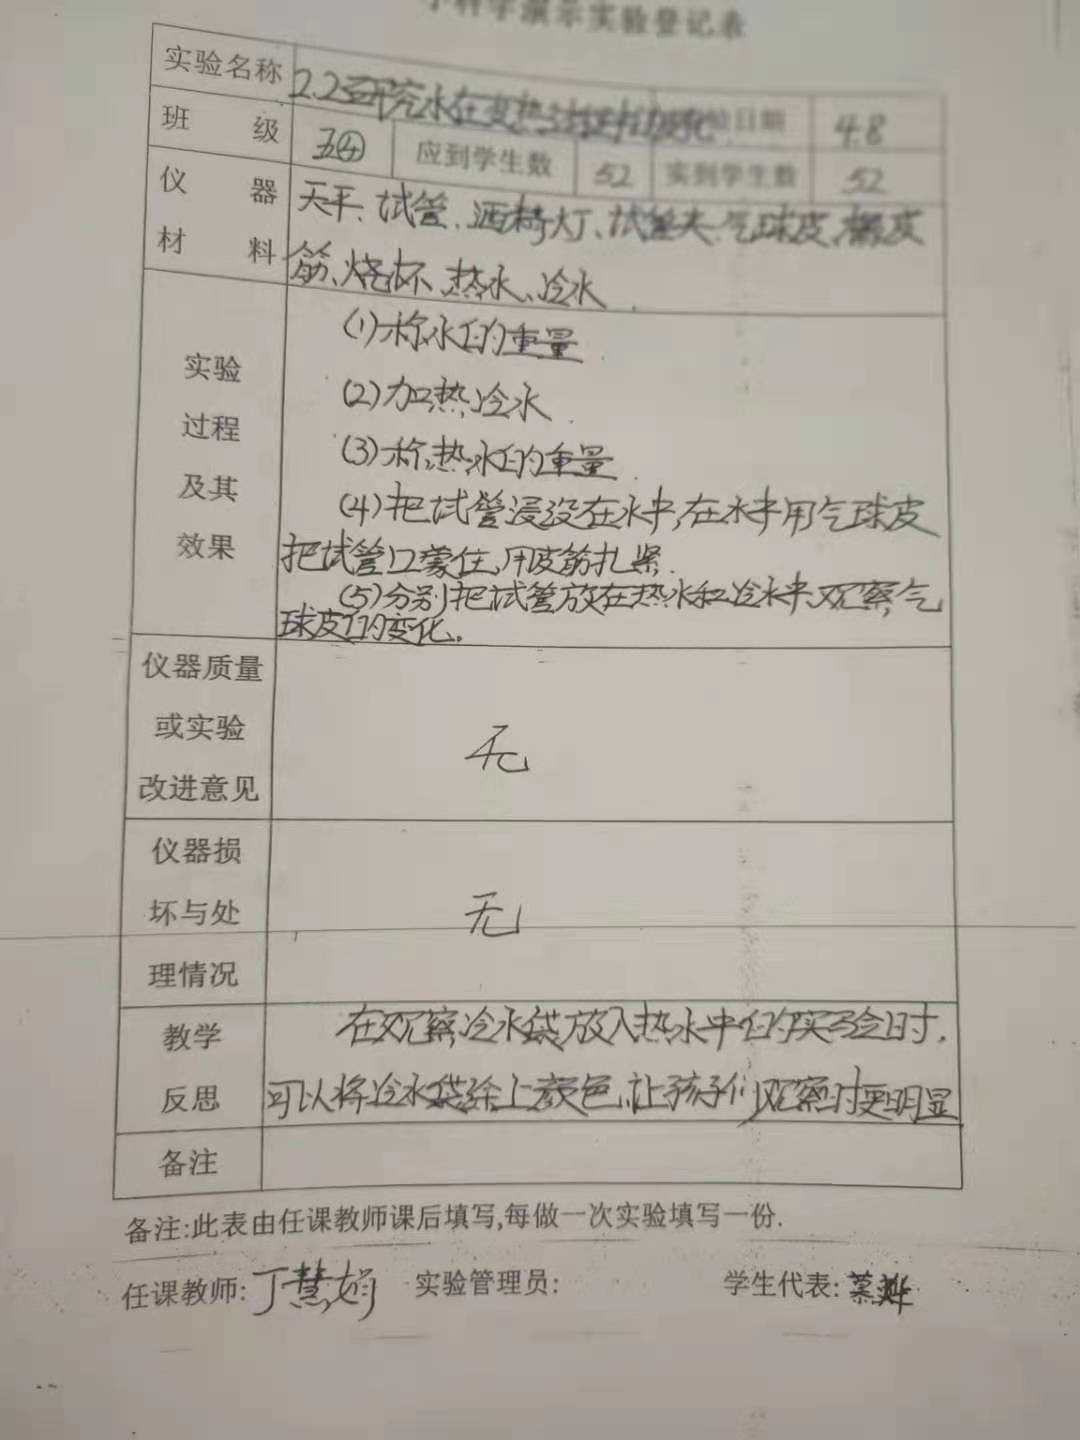 小科学演示实验登记表
实验名称 2.2研究水在变热过程中的变化 实验日期 4.8
班 级 五④ 应到学生数 52 实到学生数 52
仪 器 天平、试管、酒精灯、试管夹、气球皮、橡皮
材 料 筋、烧杯、热水、冷水
(1)称水的重量
实验 (2)加热冷水
过程 (3)称热水的重量
及其 (4)把试管浸没在水中,在水中用气球皮
效果 把试管口蒙住,用皮筋扎紧.
(5)分别把试管放在热水和冷水中,观察气
球皮的变化.
仪器质量
或实验 无
改进意见
仪器损
坏与处 无
理情况
教学 在观察冷水袋放入热水中的实验时,
反思 可以将冷水袋涂上颜色,让孩子们观察时更明显
备注
备注:此表由任课教师课后填写,每做一次实验填写一份.
任课教师:丁慧娟 实验管理员: 学生代表: